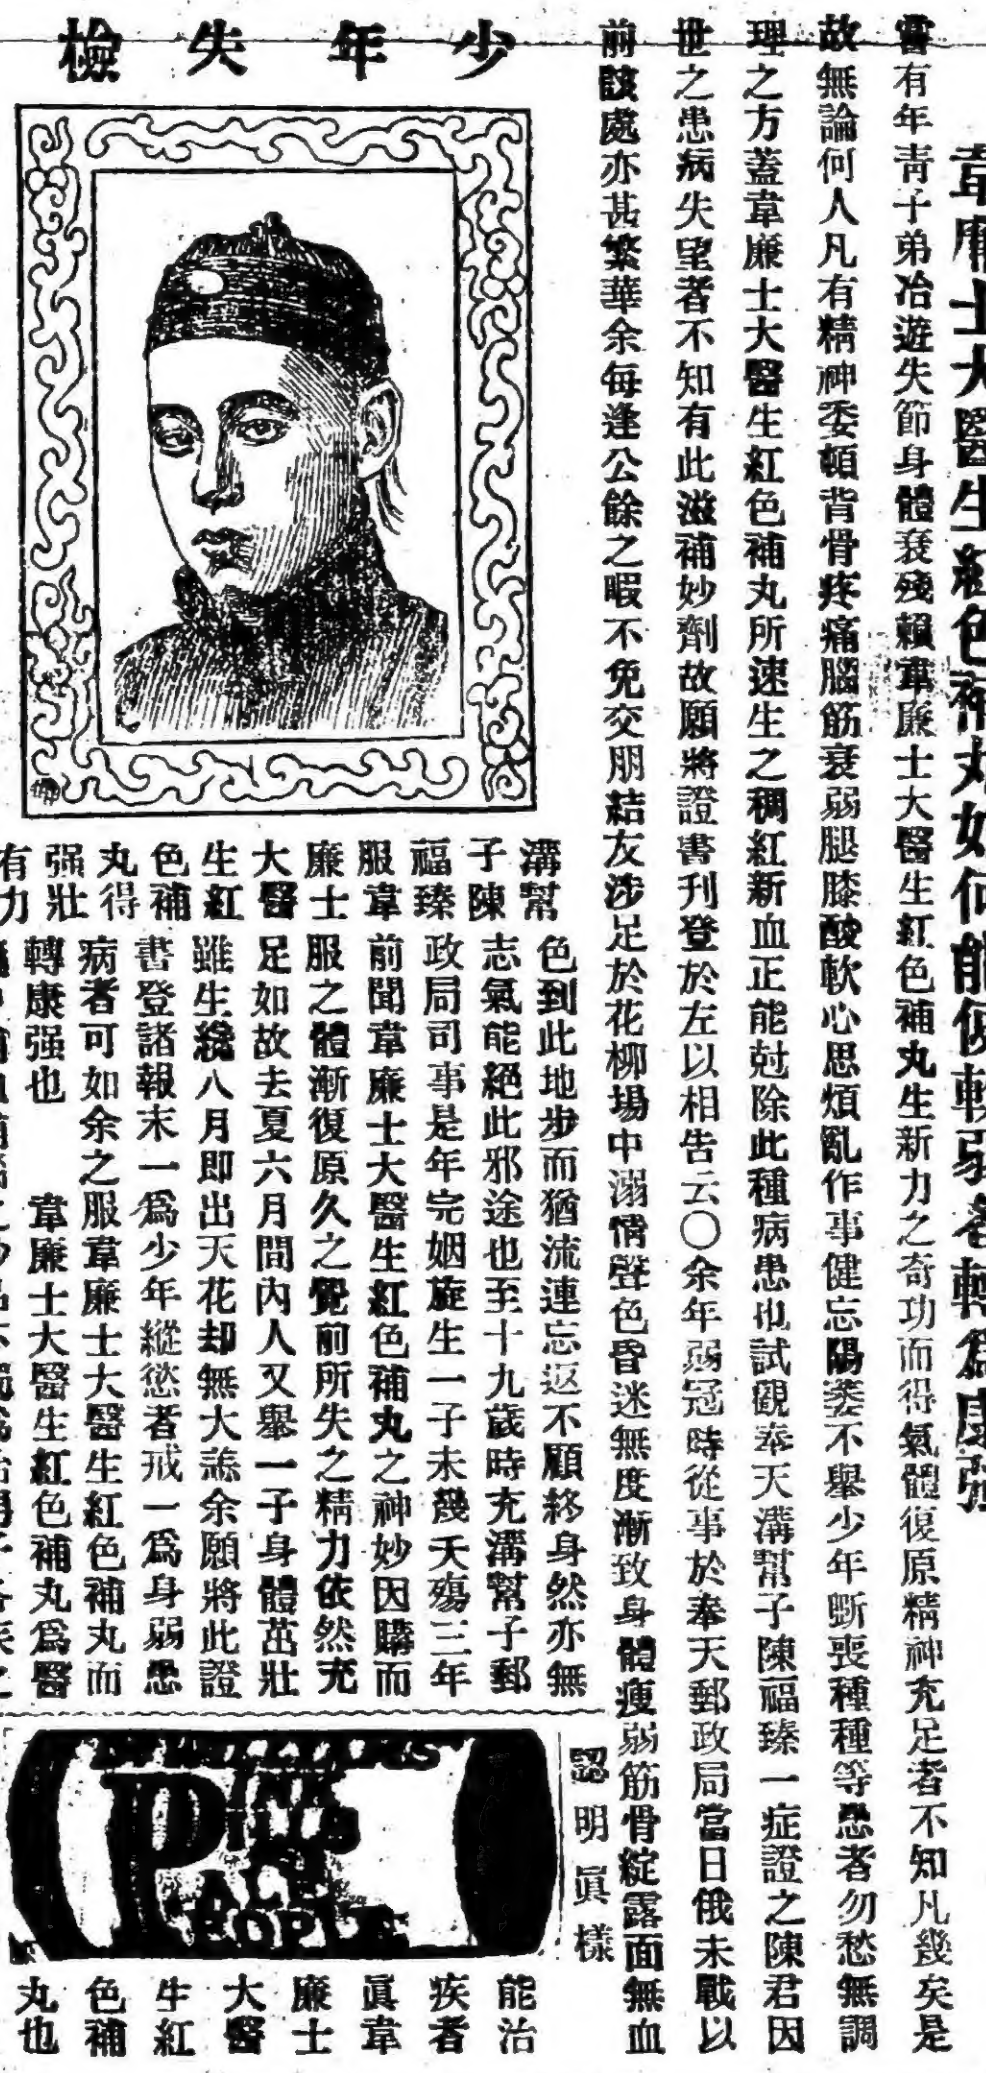 少年失檢
韋廉士大醫生紅色補丸如何能使軟弱者轉爲康强
嘗有年青子弟冶遊失節身體衰殘賴韋廉士大醫生紅色補丸生新力之奇功而得氣體復原精神充足者不知凡幾矣是
故無論何人凡有精神委頓背骨疼痛腦筋衰弱腿膝酸軟心思煩亂作事健忘陽萎不舉少年斲喪種種等患者勿愁無調
理之方蓋韋廉士大醫生紅色補丸所速生之稠紅新血正能尅除此種病患也試觀奉天溝幫子陳福臻一症證之陳君因
世之患病失望者不知有此滋補妙劑故願將證書刋登於左以相告云〇余年弱冠時從事於奉天郵政局當日俄未戰以
前該處亦甚繁華余每逢公餘之暇不免交朋結友涉足於花柳場中溺情聲色昏迷無度漸致身體瘦弱筋骨綻露面無血
色到此地步而猶流連忘返不顧終身然亦無
志氣能絕此邪途也至十九歲時充溝幫子郵
政局司事是年完姻旋生一子未幾夭殤三年
前聞韋廉士大醫生紅色補丸之神妙因購而
服之體漸復原久之覺前所失之精力依然充
足如故去夏六月間內人又舉一子身體茁壯
雖生纔八月即出天花却無大恙余願將此證
書登諸報末一爲少年縱慾者戒一爲身弱患
病者可如余之服韋廉士大醫生紅色補丸而
轉康强也 韋廉士大醫生紅色補丸爲醫
溝幫
子陳
福臻
服韋
廉士
大醫
生紅
色補
丸得
强壯
有力
認明眞樣
PINK
PILLS
ALL
PEOPLE
能治
疾者
眞韋
廉士
大醫
生紅
色補
丸也